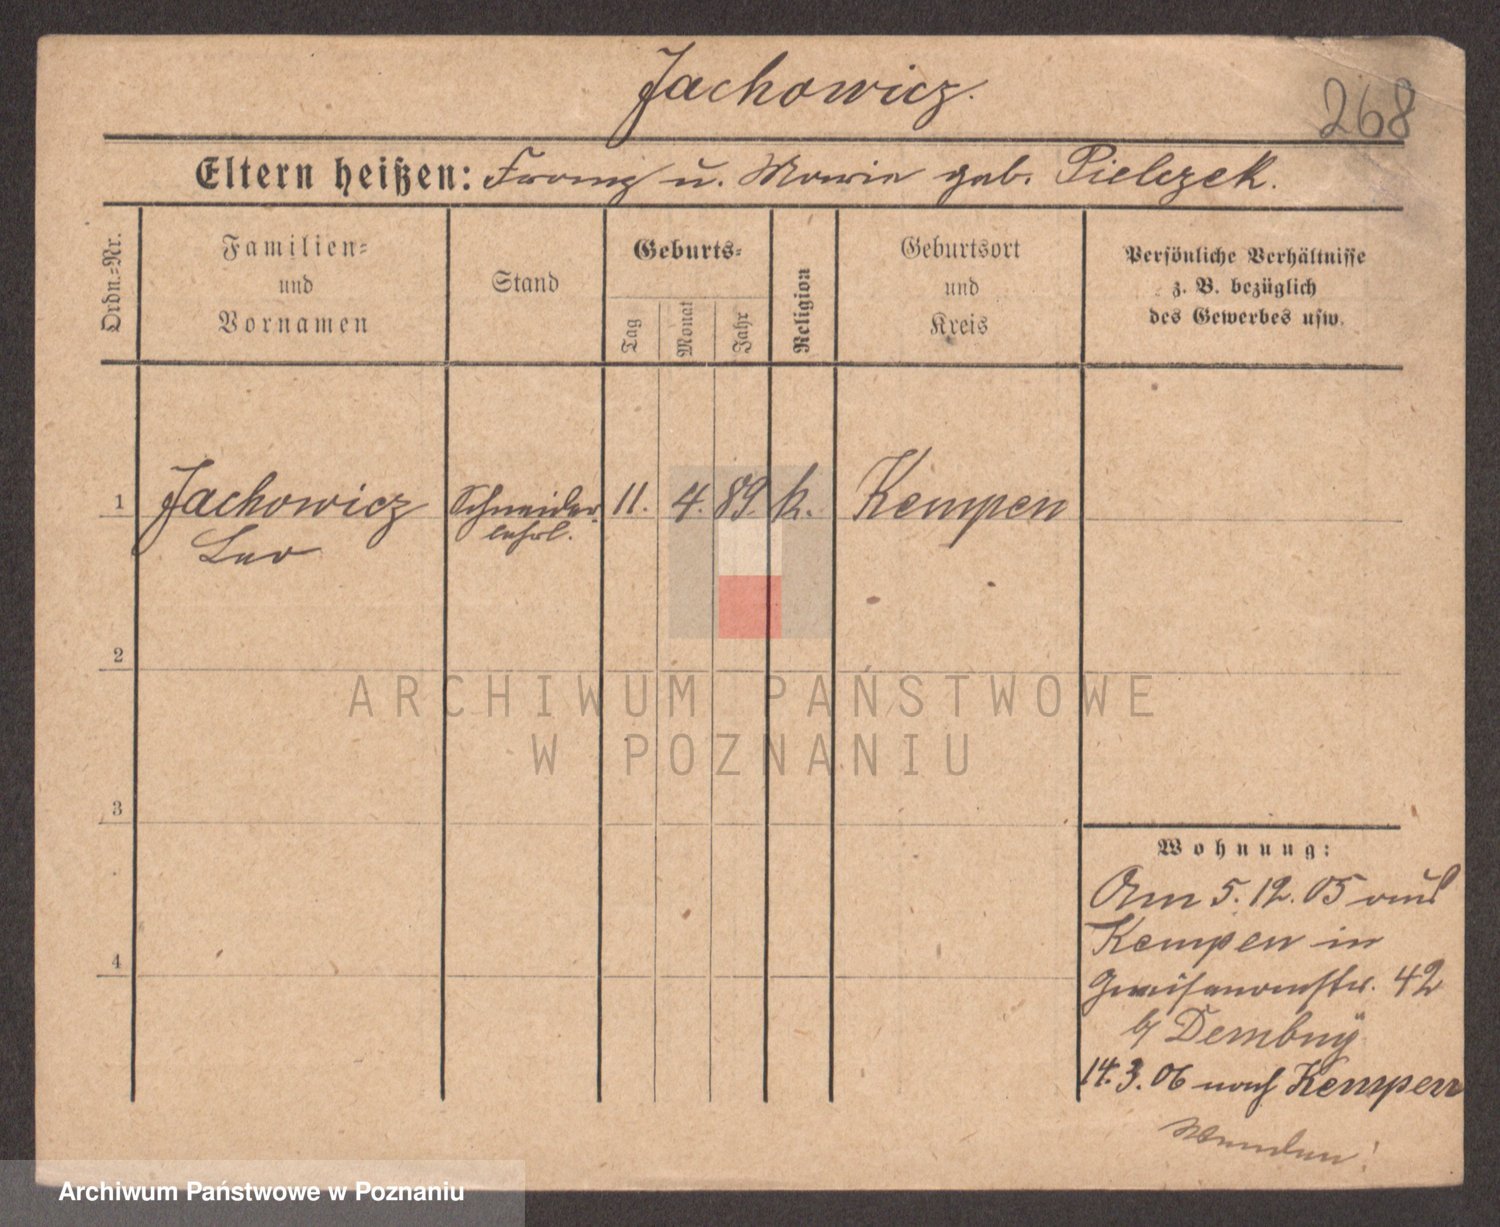 Jachowicz.
268
Eltern heißen: Franz u. Maria geb. Pielczek.
Ordn.-Nr.
Familien-
und
Vornamen
Stand
Geburts-
Tag
Monat
Jahr
Religion
Geburtsort
und
Kreis
Persönliche Verhältnisse
z. B. bezüglich
des Gewerbes usw.
1 Jachowicz Schneider 11. 4. 89. k. Kempen
Leo lehrl.
2
3
4
ARCHIWUM PAŃSTWOWE
W POZNANIU
Wohnung:
Am 5.12.05 aus
Kempen in
Gneisenaustr. 42
b/ Dembny
14.3.06 nach Kempen
Wenden!
Archiwum Państwowe w Poznaniu